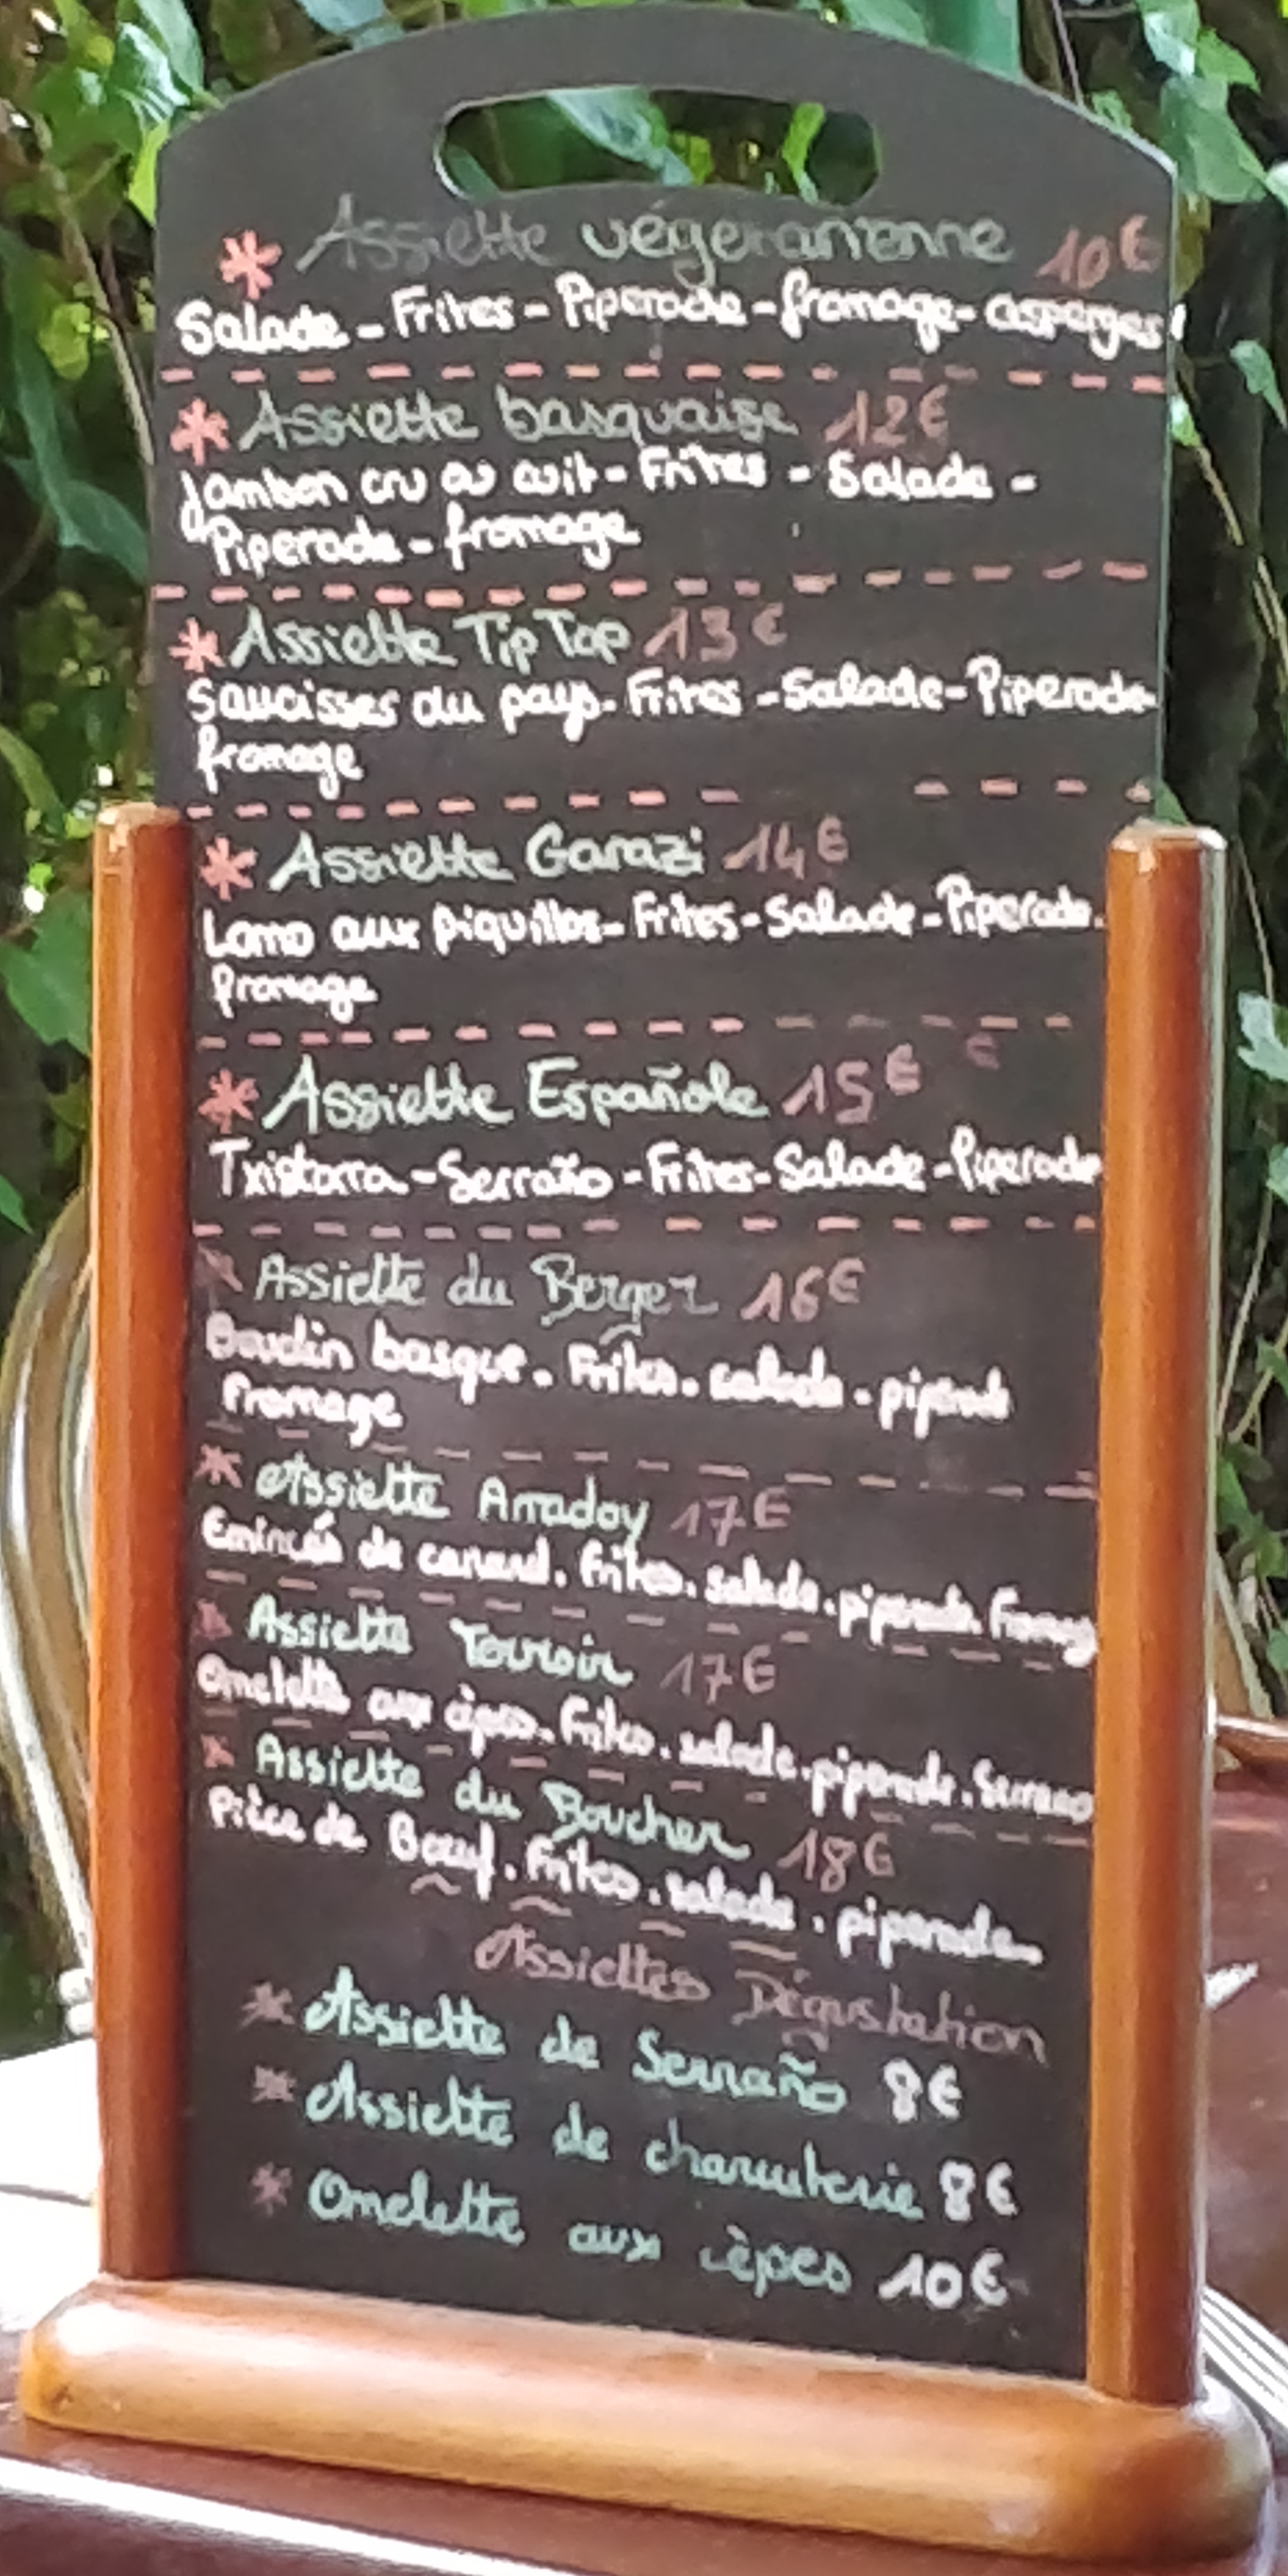 * Assiette végétarienne 10€
Salade - Frites - Piperade - fromage - asperges
* Assiette basquaise 12€
Jambon cru ou cuit - Frites - Salade -
Piperade - fromage
* Assiette Tip Top 13€
Saucisses du pays - Frites - Salade - Piperade
fromage
* Assiette Garazi 14€
Lomo aux piquillos - Frites - Salade - Piperade -
fromage
* Assiette Española 15€ €
Txistorra - Serraño - Frites - Salade - Piperade
* Assiette du Berger 16€
Boudin basque . Frites . salade . piperade
fromage
* Assiette Arradoy 17€
Emincés de canard . frites . salade . piperade . fromage
* Assiette Terroir 17€
Omelette aux cèpes . frites . salade . piperade . Serrano
* Assiette du Boucher 18€
Pièce de Bœuf . Frites . salade . piperade
Assiettes Dégustation
* Assiette de Serraño 8€
* Assiette de charcuterie 8€
* Omelette aux cèpes 10€